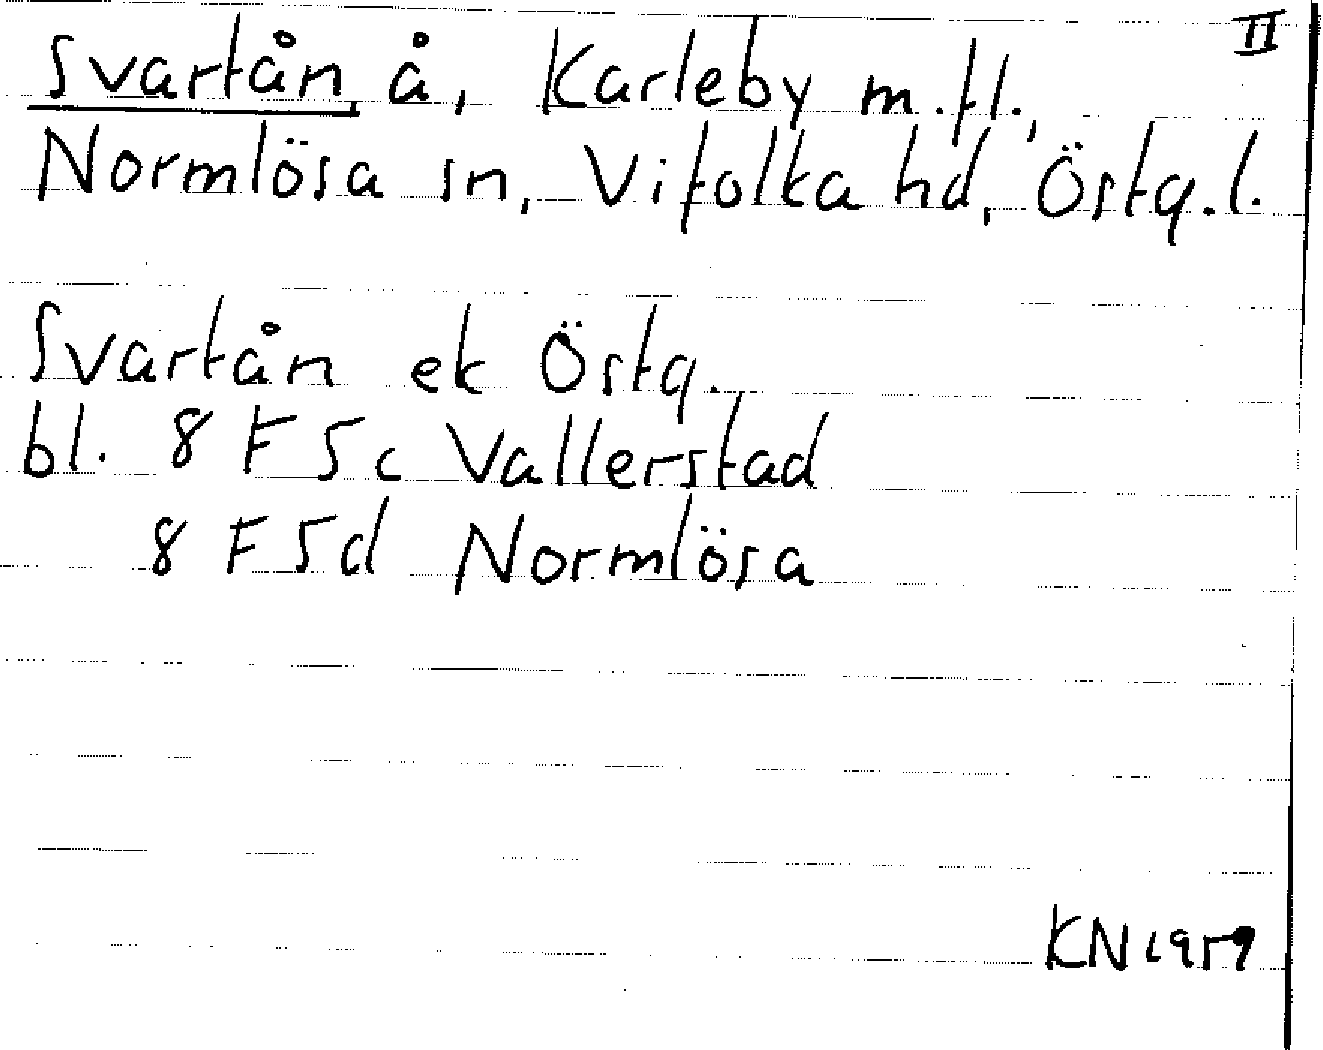 II
Svartån, å, Karleby m.fl.,
Normlösa sn, Vifolka hd, Östg.l.
Svartån ek Östg.
bl. 8 F 5c Vallerstad
8 F 5d Normlösa
KN 1959